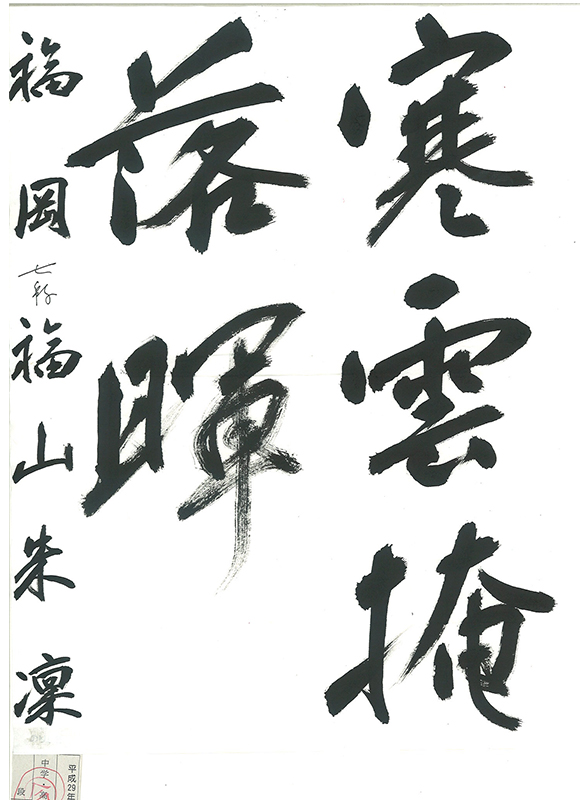 寒雲掩
落暉
福岡 七段 福山朱凜
平成29年
中学
段